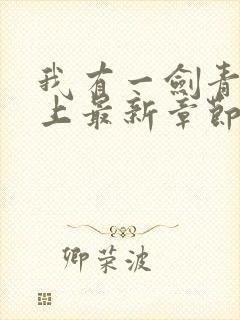 我有一剑青
上最新章节
卿荣波